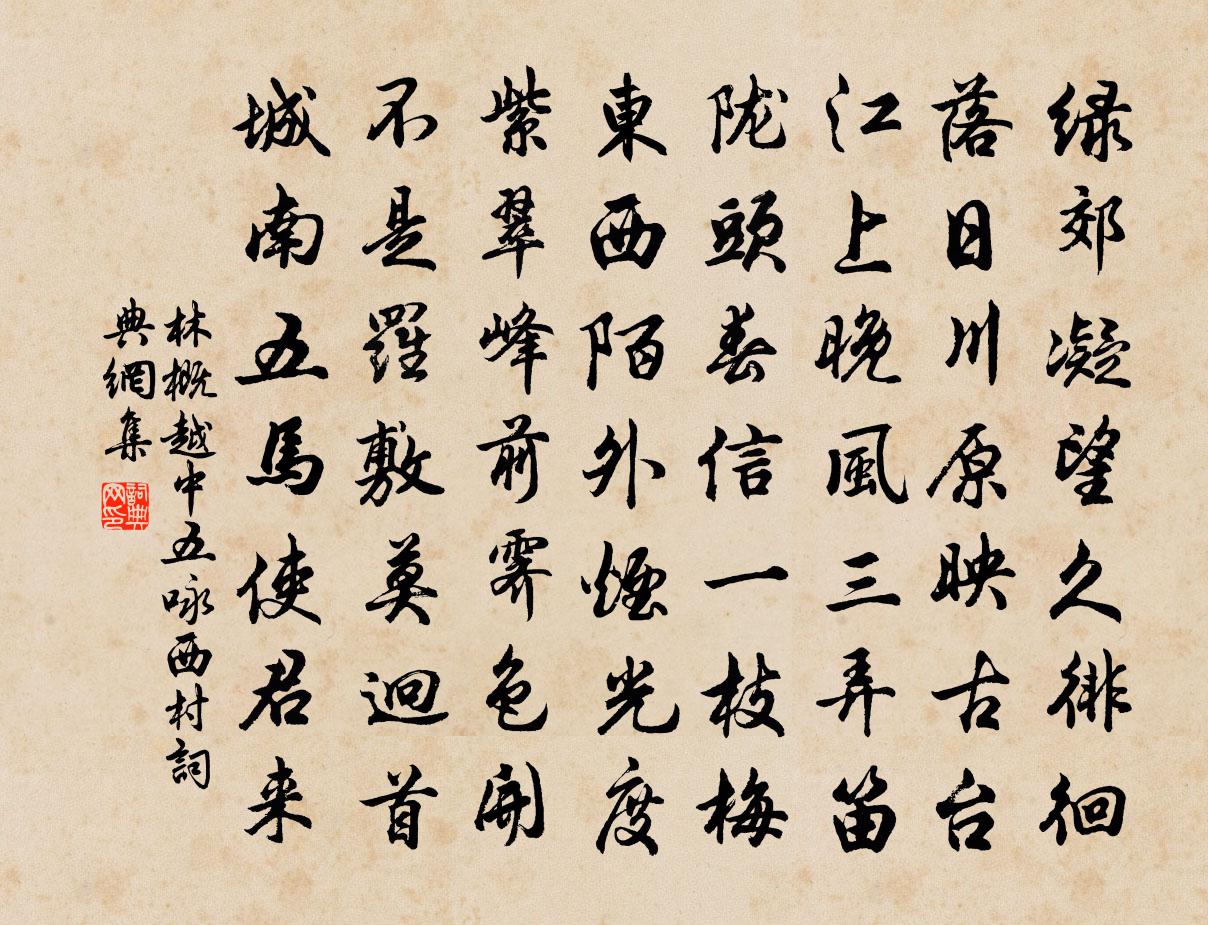 绿郊凝望久徘徊
落日川原映古台
江上晚風三弄笛
陇頭春信一枝梅
東西陌外煙光度
紫翠峰前霽色開
不是羅敷莫迴首
城南五馬使君来
林概越中五咏西村詞
典網集
詞典网印